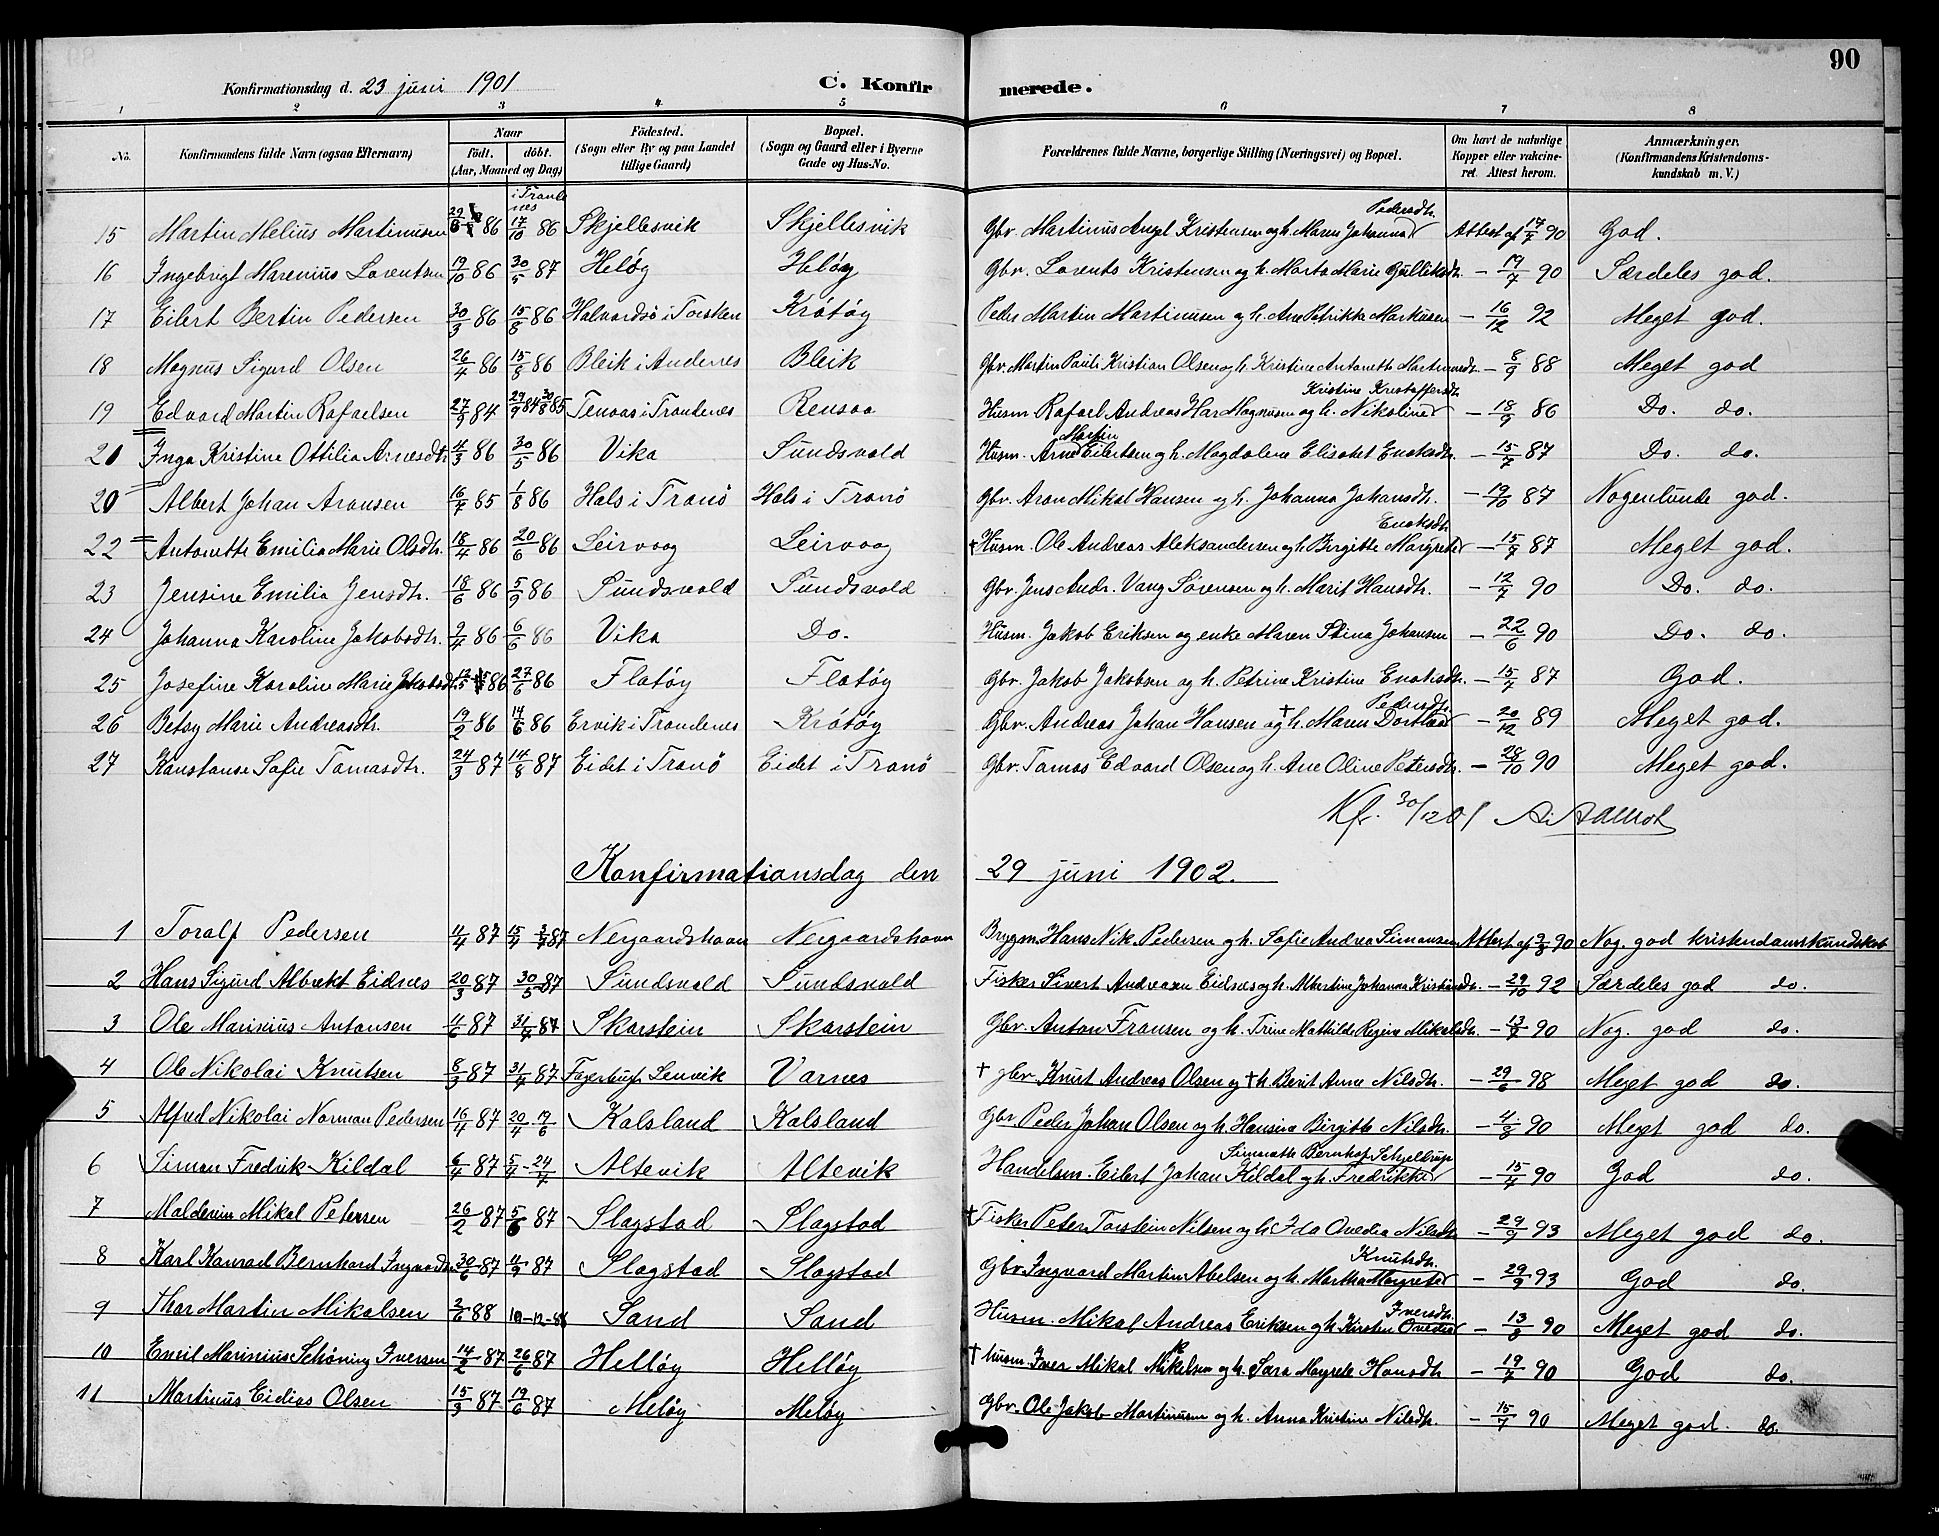 90
Konfirmationsdag d. 23 juni 1901 C. Konfirmerede.
1 2 3 4 5 6 7 8
No. Konfirmandens fulde Navn (ogsaa Efternavn) Naar födt. döbt. (Aar, Maaned og Dag) Födested. (Sogn eller By og paa Landet tillige Gaard) Bopæl. (Sogn og Gaard eller i Byerne Gade og Hus-No. Forældrenes fulde Navne, borgerlige Stilling (Næringsvei) og Bopæl. Om havt de naturlige Kopper eller vakcineret. Attest herom. Anmærkninger. (Konfirmandens Kristendomskundskab m. V.)
15 Martin Melius Martinusen 86 17/10 86 Skjellesvik Skjellesvik Gbr. Martinus Angel Kristensen og h. Maren Johanna Pedersdtr. Attest af 17/7 90 God.
16 Ingebrigt Marenius Lorentsen 19/10 86 30/5 87 Heløy Heløy Gbr. Lorents Kristensen og h. Marta Marie Gulliksdtr. - 19/7 90 Særdeles god.
17 Eilert Bertin Pedersen 30/3 86 15/8 86 Halvardsø i Torsken Krøtøy Peder Martin Martinusen og h. Ane Petrikke Markusen - 16/12 92 Meget god.
18 Magnus Sigurd Olsen 26/4 86 15/8 86 Bleik i Andenes Bleik Gbr. Martin Pauli Kristian Olsen og h. Kristine Antonette Martinusdtr. - 8/9 88 Meget god
19 Edvard Martin Rafaelsen 27/9 84 29/9 84 30/8 85 Tenaas i Trondenes Rensaa Husm. Rafael Andreas Har Magnusen og h. Nikoline Kristine Kristoffersdtr. - 18/9 86 Do. do.
21 Inga Kristine Ottilia Arnesdtr. 4/3 86 30/5 86 Vika Sundsvold Husm. Arne Martin Eilertsen og h. Magdalene Elisabet Enoksdtr. - 15/7 87 Do. do.
20 Albert Johan Aronsen 16/7 85 1/8 86 Hals i Tranö Hals i Tranö Gbr. Aron Mikal Hansen og h. Johanna Johansdtr. - 19/10 87 Nogenlunde god.
22 Antonette Emilie Marie Olsdtr. 18/4 86 20/6 86 Leirvaag Leirvaag † Husm. Ole Andreas Aleksandersen og h. Birgitte Margrete Enoksdtr. - 15/7 87 Meget god.
23 Jensine Emilie Jensdtr. 18/6 86 5/9 86 Sundsvold Sundsvold Gbr. Jens Andr. Vang Sørensen og h. Marit Hansdtr. - 12/7 90 Do. do.
24 Johanna Karoline Jakobsdtr. 9/4 86 6/6 86 Vika Do. Husm. Jakob Eriksen og enke Maren Stina Johansen - 22/6 90 Do. do.
25 Josefine Karoline Marie Jakobsdtr. 86 27/6 86 Flatøy Flatøy Gbr. Jakob Jakobsen og h. Petrine Kristine Enoksdtr. - 15/7 87 God.
26 Betsy Marie Andreasdtr. 19/2 86 14/6 86 Ervik i Trondenes Krøtøy Gbr. Andreas Johan Hansen og † h. Maren Dorthea Pedersdtr. - 20/12 89 Meget god.
27 Konstanse Sofie Tomasdtr. 24/3 87 14/8 87 Eidet i Tranö Eidet i Tranö Gbr. Tomas Edvard Olsen og h. Ane Oline Petersdtr. - 28/10 90 Meget god.
Kfr. 30/12 01
Konfirmationsdag den 29 juni 1902.
1 Toralf Pedersen 11/4 87 15/4 3/7 87 Nergaardshavn Nergaardshavn Brygm. Hans Nik. Pedersen og h. Sofie Andrea Simonsen Attest af 90 Nog. god kristendomskundskab
2 Hans Sigurd Albrekt Eidnes 20/3 87 30/5 87 Sundsvold Sundsvold Fisker Sivert Andreasen Eidnes og h. Albertine Johanna Kristiansdtr. - 29/10 92 Særdeles god do.
3 Ole Marinius Antonsen 11/6 87 31/7 87 Skarstein Skarstein Gbr. Anton Fransen og h. Trine Mathilde Regine Mikalsdtr. - 13/7 90 Nog. god do.
4 Ole Nikolai Knutsen 8/3 87 31/7 87 Fagerhaug Lenvik Varnes † gbr. Knut Andreas Olsen og † h. Berit Anne Nilsdtr. - 29/6 98 Meget god do.
5 Alfred Nikolai Norman Pedersen 16/4 87 20/4 19/6 Kalsland Kalsland Gbr. Peder Johan Olsen og h. Hansina Birgitte Nilsdtr. - 4/8 90 Meget god do.
6 Simon Fredrik Kildal 6/4 87 5/4 - 24/7 Altevik Altevik Handelsm. Eilert Johan Kildal og h. Fredrikke Simonette Bernhof Schjellrup - 15/7 90 God do.
7 Malderius Mikal Petersen 26/2 87 5/6 87 Slagstad Slagstad † Fisker Peter Torstein Nilsen og h. Ida Ovedia Nilsdtr. - 29/9 93 Meget god do.
8 Karl Konrad Bernhard Ingvardsen 30/6 87 11/9 87 Slagstad Slagstad Gbr Ingvard Martin Abelsen og h. Martha Margrete Knutsdtr. - 29/9 93 God do.
9 Thor Martin Mikalsen 2/6 88 10-12-88 Sand Sand Husm. Mikal Andreas Eriksen og h. Kirsten Ovedia Iversdtr. - 13/8 90 Meget god do.
10 Emil Marinius Schøning Iversen 14/2 87 26/6 87 Helløy Helløy † husm. Iver Mikal Mikkelsen og h. Sara Margrete Hansdtr. - 19/7 90 God do.
11 Martinus Eidias Olsen 15/3 87 19/6 87 Meløy Meløy Gbr. Ole Jakob Martinusen og h. Anna Kristine Nilsdtr. - 15/7 90 Meget god. do.